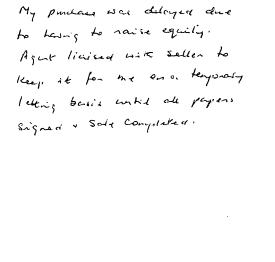 My purchase was delayed due
to having to raise equity.
Agent liaised with seller to
keep it for me on a temporary
letting basis until all papers
signed + sale completed.